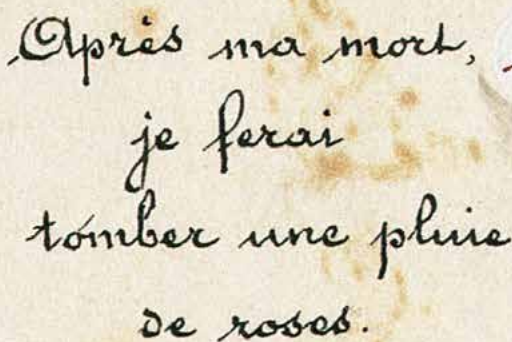 Après ma mort,
je ferai
tomber une pluie
de roses.